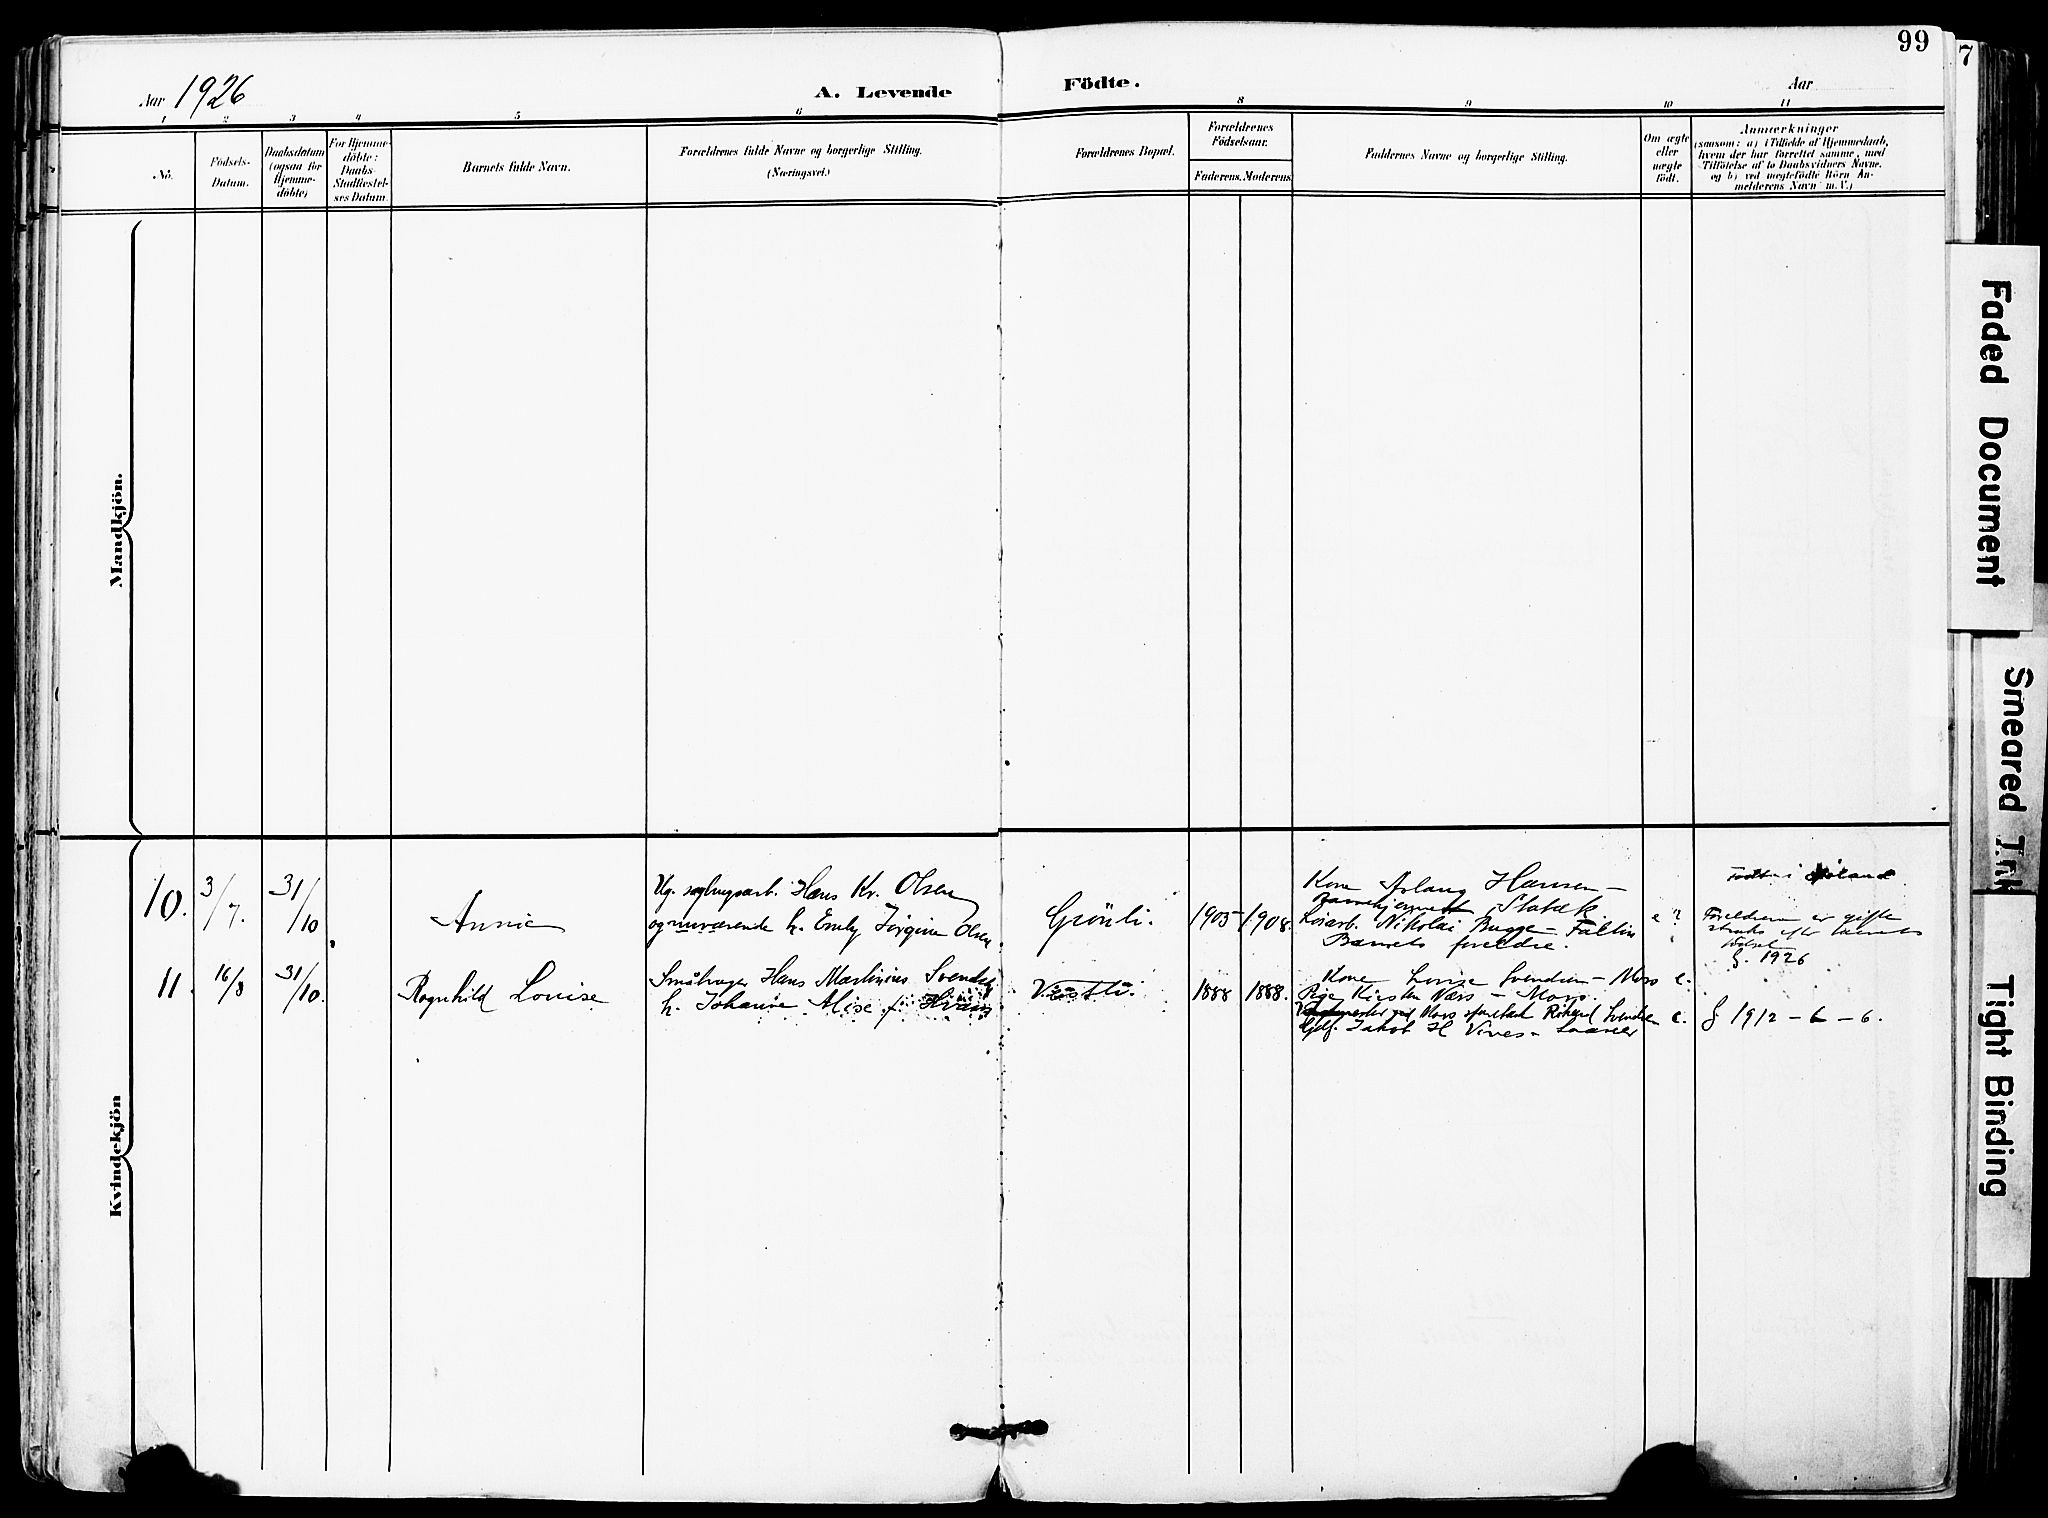 99
7
Aar 1926
A. Levende Födte.
Aar
1 2 3 4 5 6 8 9 10 11
No.
Födsels-
Datum.
Daabsdatum
(ogsaa for
Hjemme-
döbte)
For Hjemme-
döbte:
Daabs-
Stadfæstel-
ses Datum.
Barnets fulde Navn.
Forældrenes fulde Navne og borgerlige Stilling.
(Næringsvei.)
Forældrenes Bopæl.
Forældrenes
Födselsaar.
Faderens. Moderens.
Faddernes Navne og borgerlige Stilling.
Om ægte
eller
uægte
födt.
Anmærkninger
(saasom: a) (Tilfælde af Hjemmedaab,
hvem der har forrettet samme, med
Tilföielse af to Daabsvidners Navne.
og b) ved uægtefödte Börn An-
melderens Navn m.V.)
Mandkjön.
Kvindekjön
10. 3/7. 31/10
Annie
Ug. sagbrugsarb. Hans Kr. Olsen
og nuværende h. Emly Jörgine Olsen
Grönli.
1905 1908.
Kone Aslaug Hansen
Nikolai Bugge
Barnets foreldre.
e?
Foreldrene er gifte
straks efter barnets
födsel
§. 1926
11. 16/8 31/10.
Ragnhild Louise
Småbruger Hans Martinius Svendsen
h. Johanne Alise f.
Vestli.
1888 1888.
Kone Lovise Svendsen – Moss
Pige Kirsten Næss – Moss
Svendsen
Jakob H
e.
e.
§ 1912 – 6 – 6.
Faded Document
Smeared Ink
Tight Binding